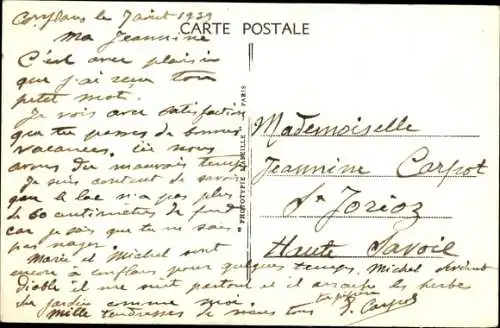 Conflans le 7 août 1939
CARTE POSTALE
Ma Jeannine
C'est avec plaisir
que j'ai reçu ton
petit mot.
Je vois avec satisfaction
que tu passes de bonnes
vacances, ici nous
avons du mauvais temps
Je suis content de savoir
que le lac n'a pas plus
de 60 centimètres de fond
car je sais que tu ne sais
pas nager.
Marie et Michel sont
encore à Conflans pour quelques temps. Michel
diable il me suit partout et il arrache les herbes
du jardin comme moi.
Mille tendresses de nous tous
Mademoiselle
Jeannine Carpot
St Jorioz
Haute Savoie